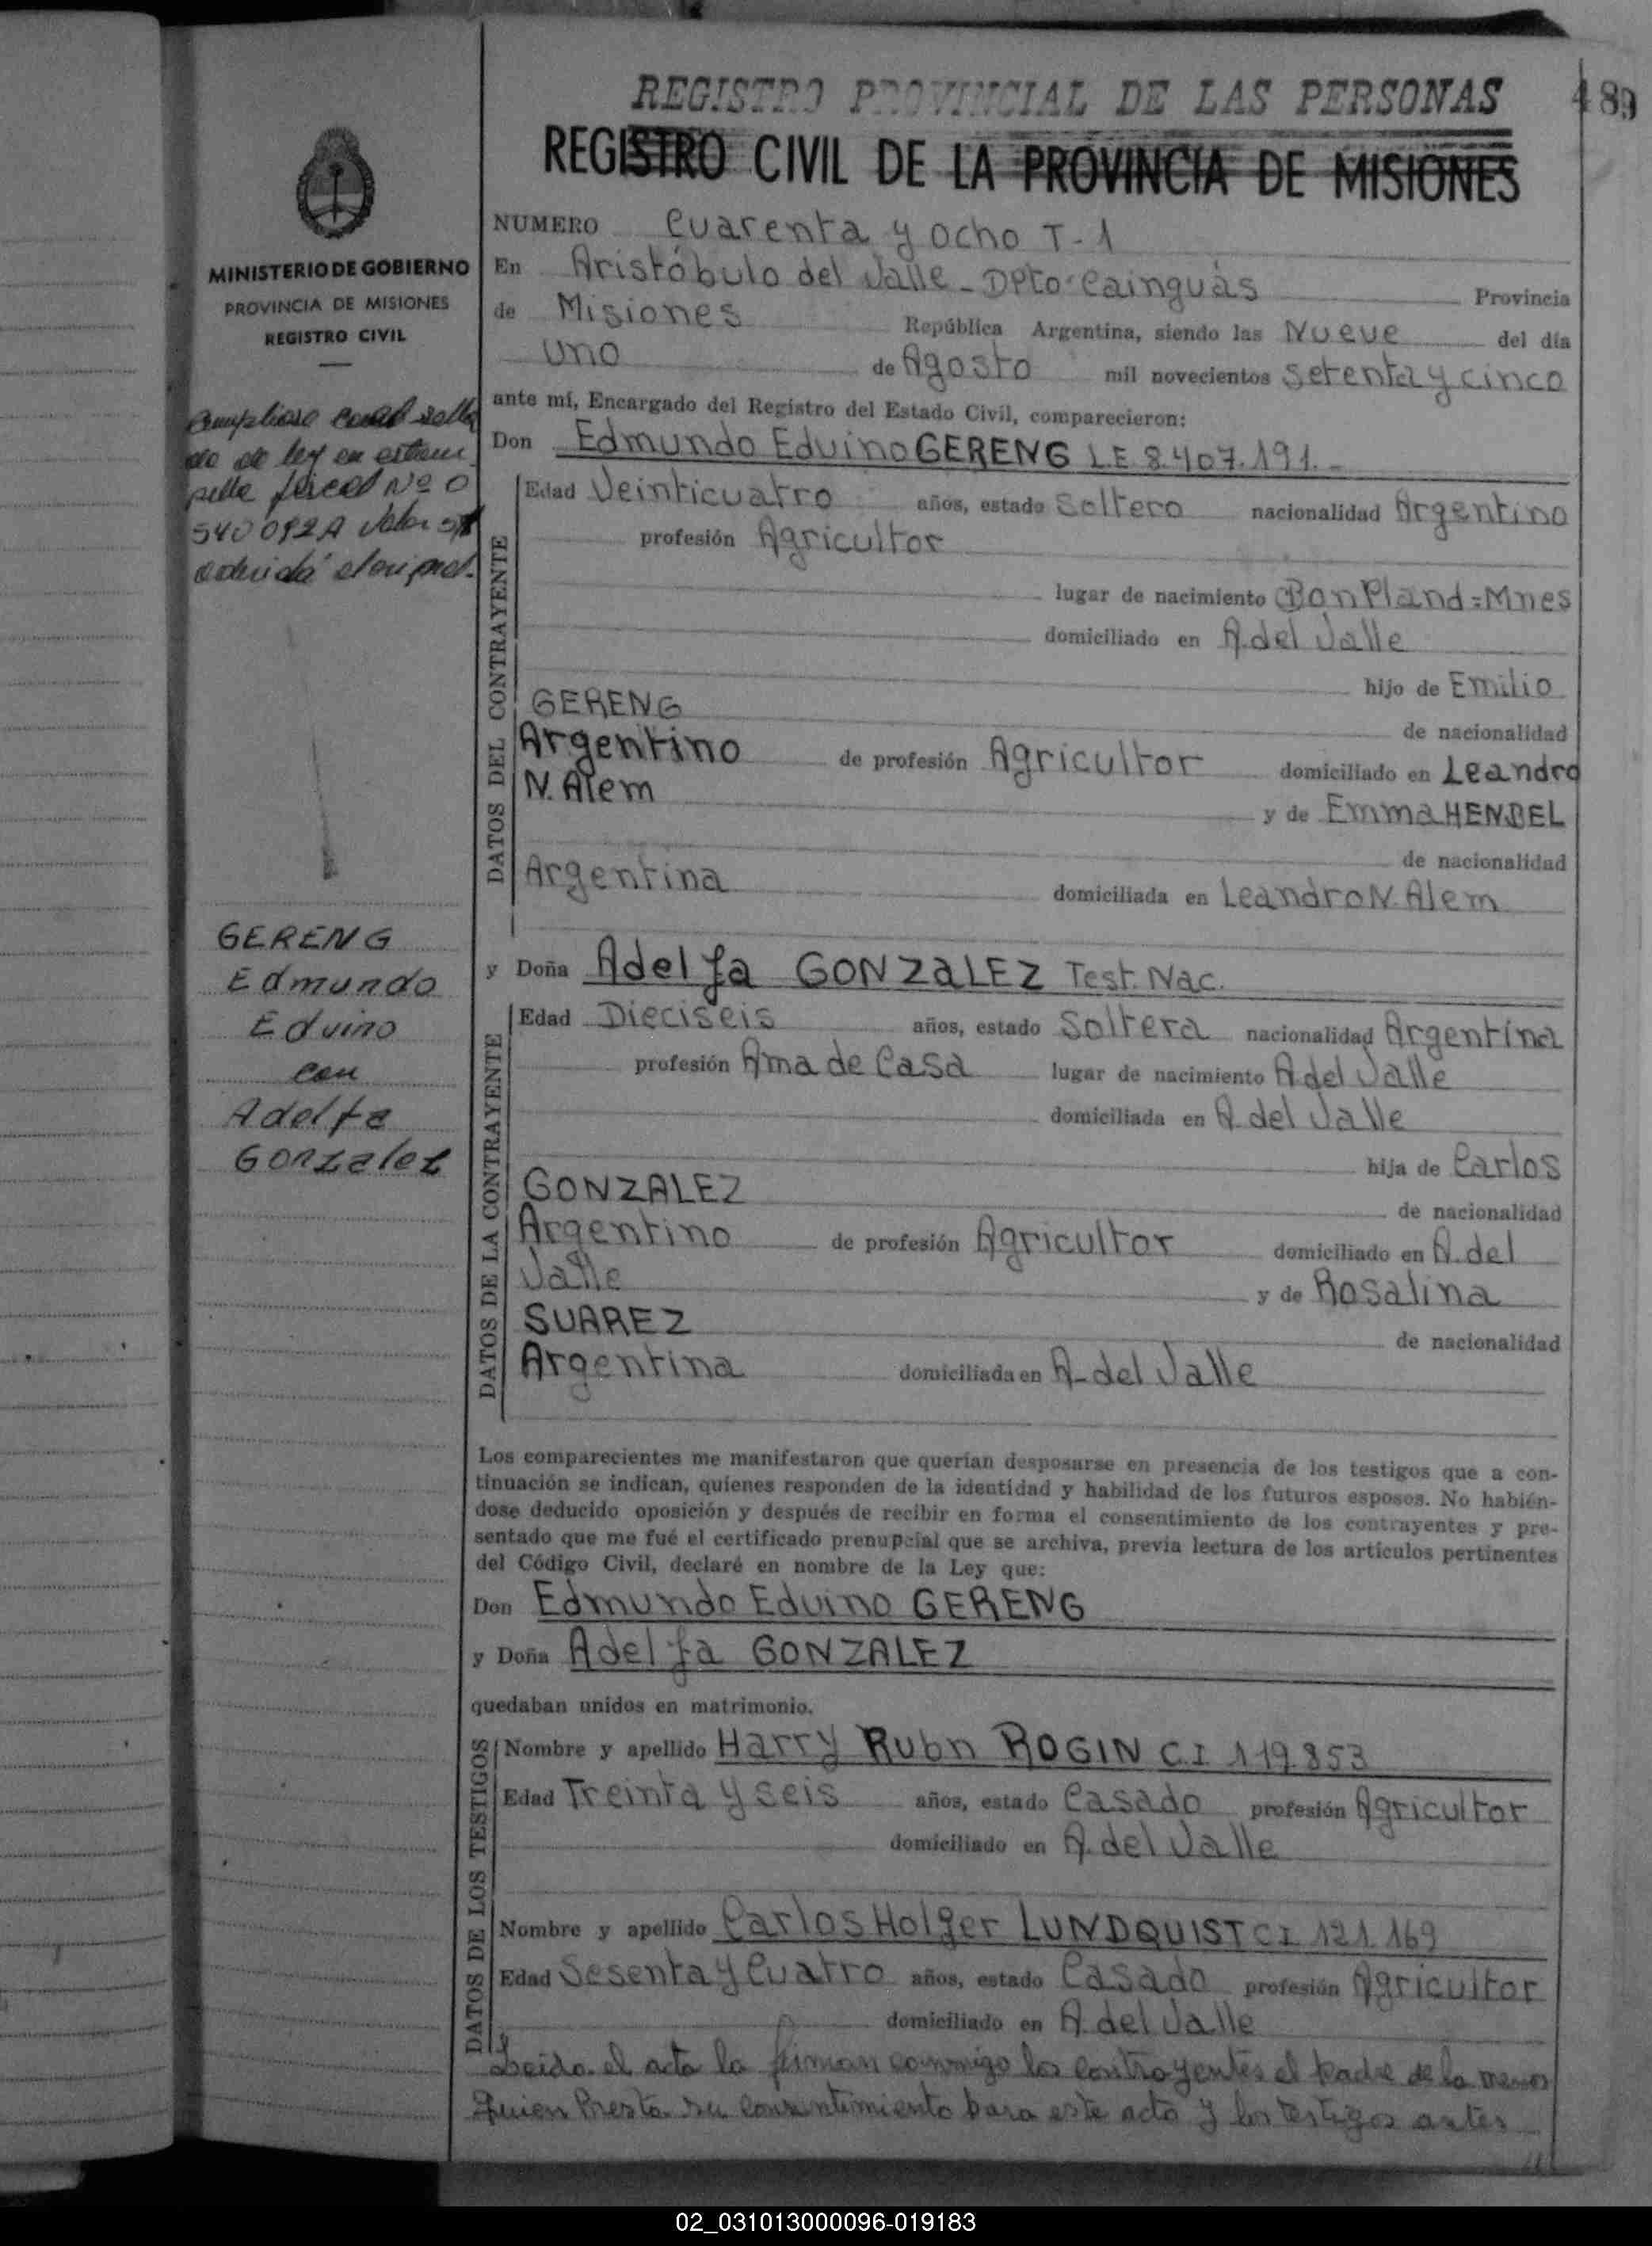 REGISTRO PROVINCIAL DE LAS PERSONAS
489
REGISTRO CIVIL DE LA PROVINCIA DE MISIONES
MINISTERIO DE GOBIERNO
PROVINCIA DE MISIONES
REGISTRO CIVIL
de ley en
fiscal Nº 0
540092A Valor
GERENG
Edmundo
Eduino
con
Adelfa
Gonzalez
NUMERO Cuarenta y ocho T-1
En Aristóbulo del Valle - Dpto Cainguás Provincia
de Misiones República Argentina, siendo las Nueve del día
uno de Agosto mil novecientos setenta y cinco
ante mí, Encargado del Registro del Estado Civil, comparecieron:
Don Edmundo Eduino GERENG L E 8.407.191.-
DATOS DEL CONTRAYENTE
Edad Veinticuatro años, estado Soltero nacionalidad Argentino
profesión Agricultor
lugar de nacimiento BonPland=Mnes
domiciliado en A. del Valle
hijo de Emilio
GERENG de nacionalidad
Argentino de profesión Agricultor domiciliado en Leandro
N. Alem y de Emma HENDEL
de nacionalidad
Argentina domiciliada en Leandro N. Alem
y Doña Adelfa GONZALEZ Test. Nac.
DATOS DE LA CONTRAYENTE
Edad Dieciseis años, estado Soltera nacionalidad Argentina
profesión Ama de Casa lugar de nacimiento A del Valle
domiciliada en A. del Valle
hija de Carlos
GONZALEZ de nacionalidad
Argentino de profesión Agricultor domiciliado en A. del
Valle y de Rosalina
SUAREZ de nacionalidad
Argentina domiciliada en A- del Valle
Los comparecientes me manifestaron que querían desposarse en presencia de los testigos que a con-
tinuación se indican, quienes responden de la identidad y habilidad de los futuros esposos. No habién-
dose deducido oposición y después de recibir en forma el consentimiento de los contrayentes y pre-
sentado que me fué el certificado prenupcial que se archiva, previa lectura de los artículos pertinentes
del Código Civil, declaré en nombre de la Ley que:
Don Edmundo Eduino GERENG
y Doña Adelfa GONZALEZ
quedaban unidos en matrimonio.
DATOS DE LOS TESTIGOS
Nombre y apellido Harry Rubn ROGIN C.I 119.853
Edad Treinta y seis años, estado Casado profesión Agricultor
domiciliado en A. del Valle
Nombre y apellido Carlos Holger LUNDQUIST C I 121.169
Edad Sesenta y Cuatro años, estado Casado profesión Agricultor
domiciliado en A. del Valle
Leída el acta la firman conmigo los contrayentes el Padre de la menor
Quien Presta su consentimiento para este acto y los testigos antes
02_031013000096-019183